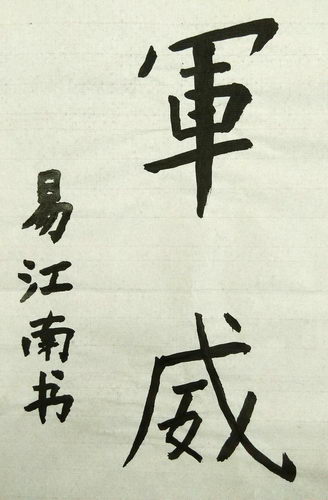 軍威
易江南书